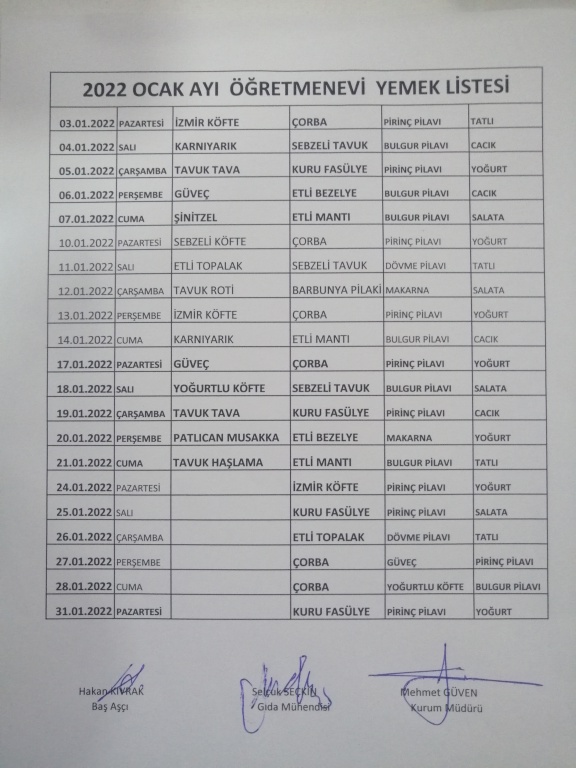 2022 OCAK AYI ÖĞRETMENEVİ YEMEK LİSTESİ
03.01.2022 PAZARTESİ İZMİR KÖFTE ÇORBA PİRİNÇ PİLAVI TATLI
04.01.2022 SALI KARNIYARIK SEBZELİ TAVUK BULGUR PİLAVI CACIK
05.01.2022 ÇARŞAMBA TAVUK TAVA KURU FASÜLYE PİRİNÇ PİLAVI YOĞURT
06.01.2022 PERŞEMBE GÜVEÇ ETLİ BEZELYE BULGUR PİLAVI CACIK
07.01.2022 CUMA ŞİNİTZEL ETLİ MANTI BULGUR PİLAVI SALATA
10.01.2022 PAZARTESİ SEBZELİ KÖFTE ÇORBA PİRİNÇ PİLAVI YOĞURT
11.01.2022 SALI ETLİ TOPALAK SEBZELİ TAVUK DÖVME PİLAVI TATLI
12.01.2022 ÇARŞAMBA TAVUK ROTİ BARBUNYA PİLAKİ MAKARNA SALATA
13.01.2022 PERŞEMBE İZMİR KÖFTE ÇORBA PİRİNÇ PİLAVI YOĞURT
14.01.2022 CUMA KARNIYARIK ETLİ MANTI BULGUR PİLAVI CACIK
17.01.2022 PAZARTESİ GÜVEÇ ÇORBA PİRİNÇ PİLAVI YOĞURT
18.01.2022 SALI YOĞURTLU KÖFTE SEBZELİ TAVUK BULGUR PİLAVI SALATA
19.01.2022 ÇARŞAMBA TAVUK TAVA KURU FASÜLYE PİRİNÇ PİLAVI CACIK
20.01.2022 PERŞEMBE PATLICAN MUSAKKA ETLİ BEZELYE MAKARNA YOĞURT
21.01.2022 CUMA TAVUK HAŞLAMA ETLİ MANTI BULGUR PİLAVI TATLI
24.01.2022 PAZARTESİ İZMİR KÖFTE PİRİNÇ PİLAVI YOĞURT
25.01.2022 SALI KURU FASÜLYE PİRİNÇ PİLAVI SALATA
26.01.2022 ÇARŞAMBA ETLİ TOPALAK DÖVME PİLAVI TATLI
27.01.2022 PERŞEMBE ÇORBA GÜVEÇ PİRİNÇ PİLAVI
28.01.2022 CUMA ÇORBA YOĞURTLU KÖFTE BULGUR PİLAVI
31.01.2022 PAZARTESİ KURU FASÜLYE PİRİNÇ PİLAVI YOĞURT
Hakan KIVRAK Selçuk SEÇKİN Mehmet GÜVEN
Baş Aşçı Gıda Mühendisi Kurum Müdürü